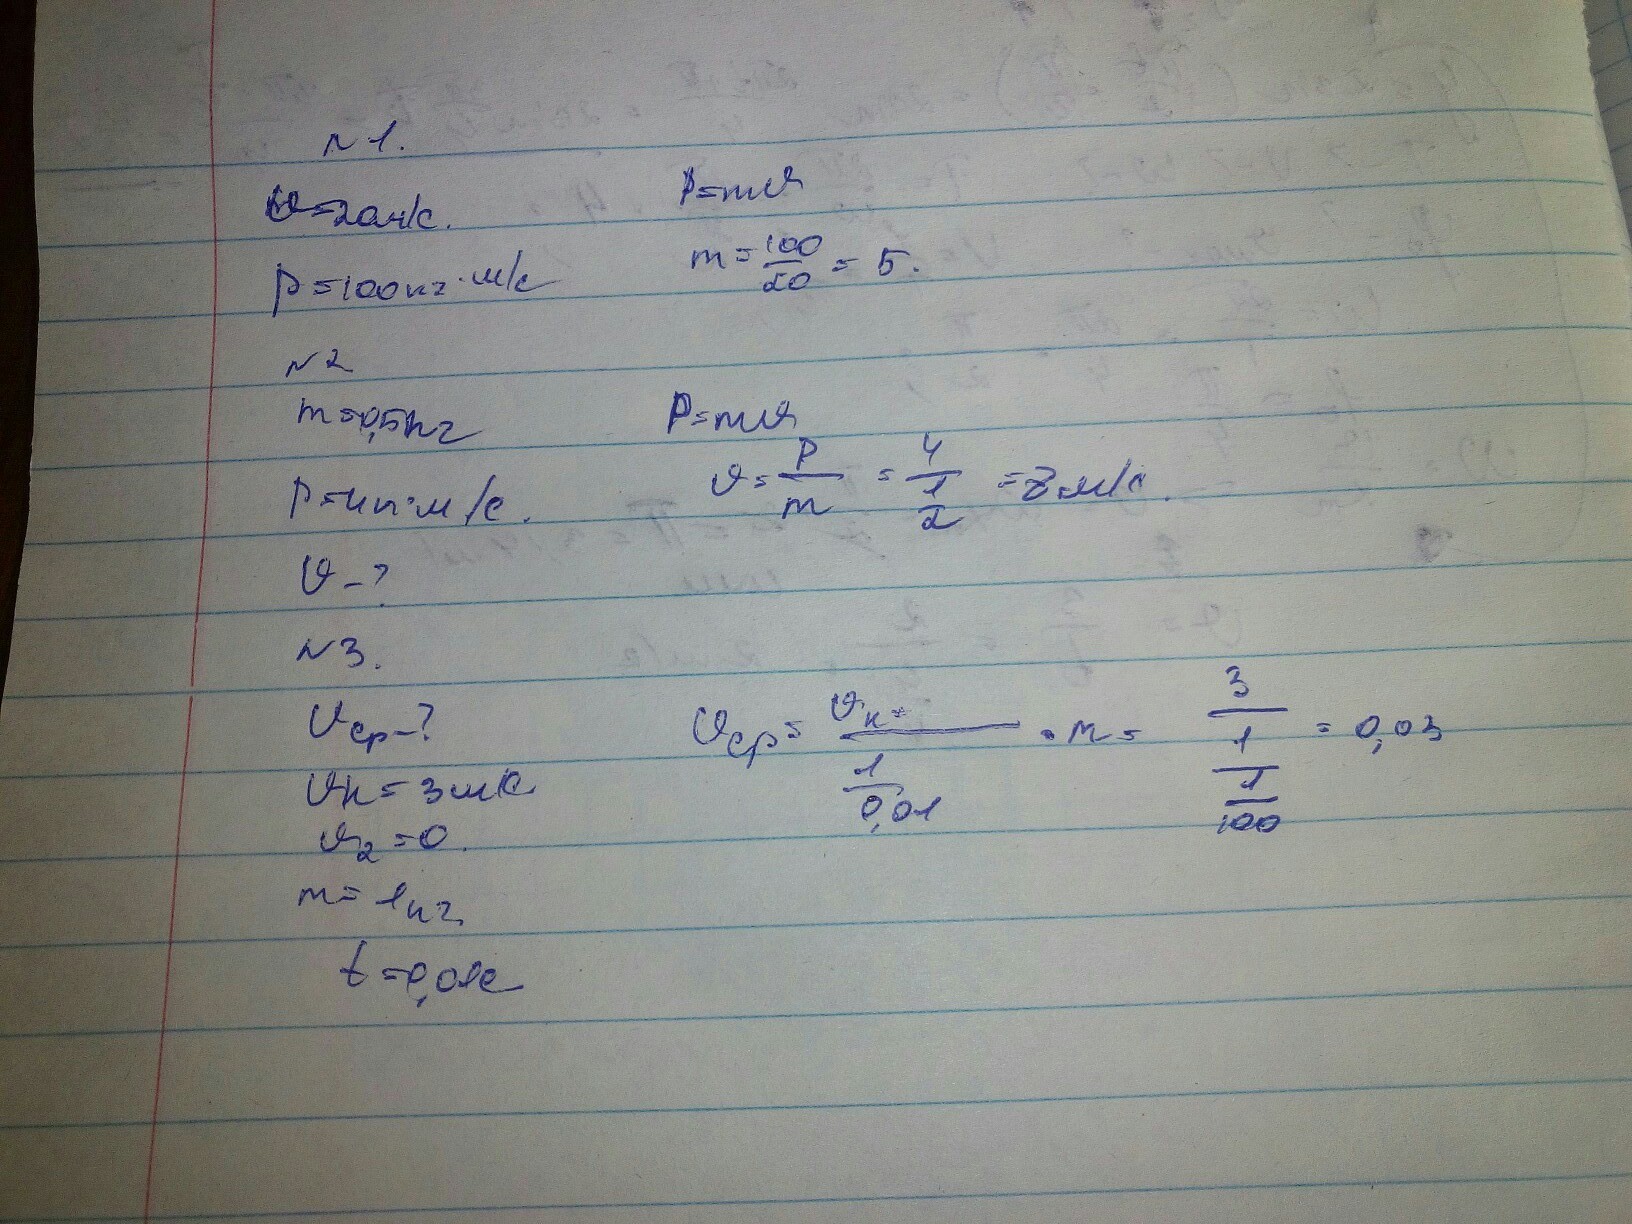 N1.
υ=20м/с. P=mυ
p=100кг·м/с m=100/20=5.
N2
m=0,5кг P=mυ
P=4н·м/с. υ=P/m=4/(1/2)=8м/с.
υ-?
N3.
υср-? υср=υк/(1/0,01)·m=3/(1/(1/100))=0,03
υк=3м/с
υ2=0.
m=1кг
t=0,01с